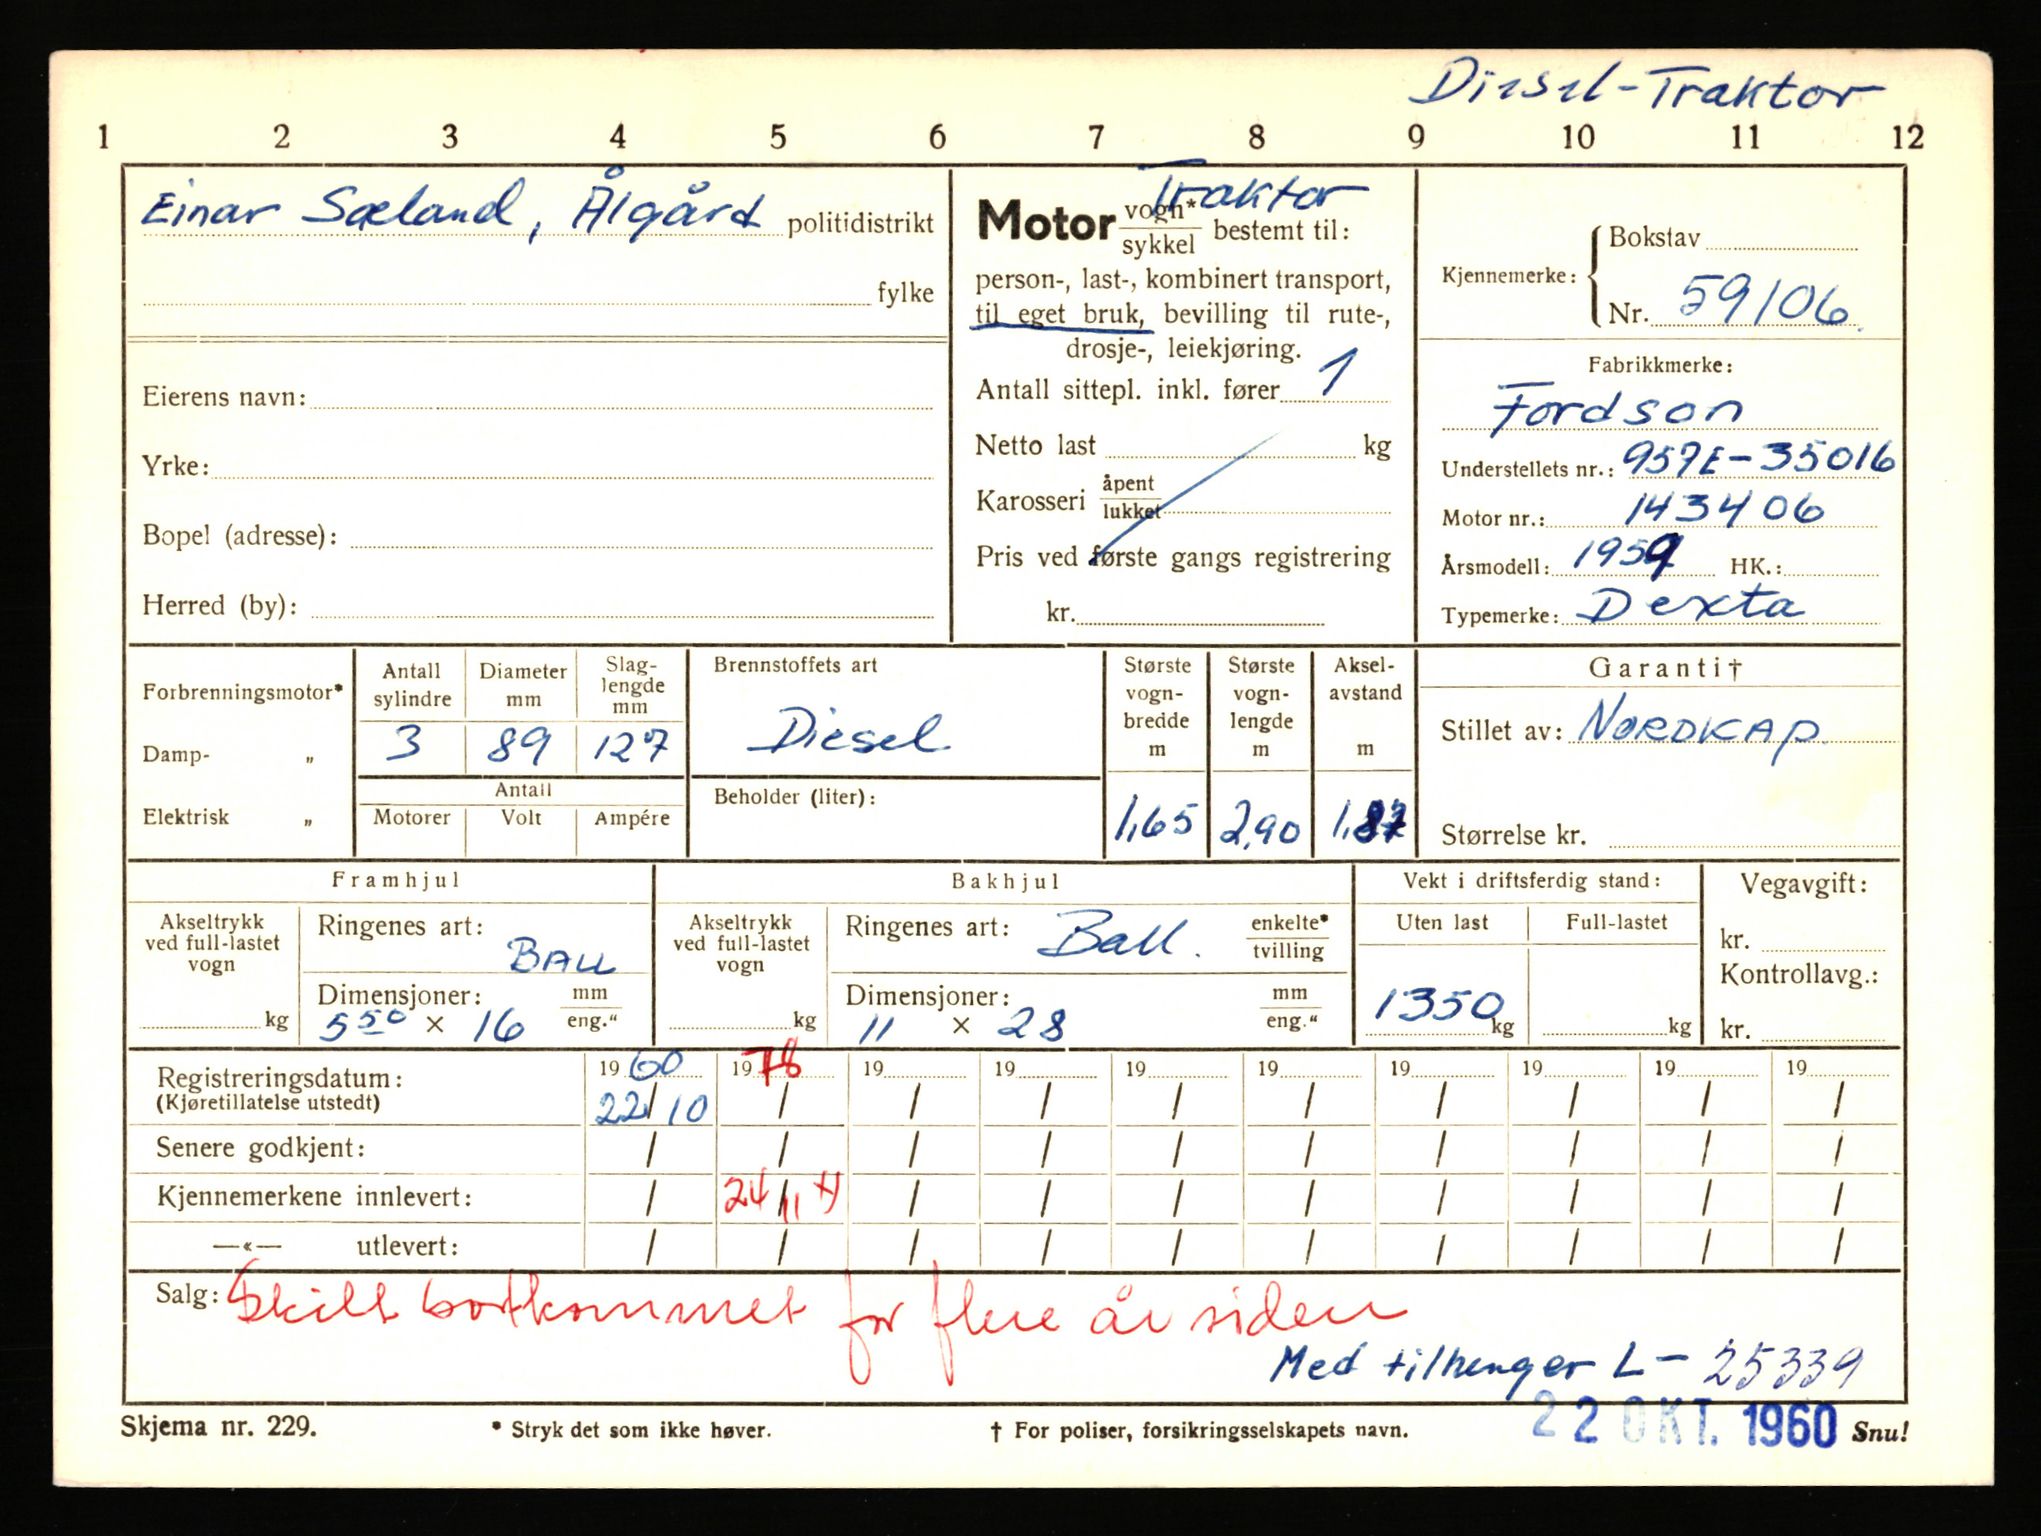 Diesel-Traktor
1 2 3 4 5 6 7 8 9 10 11 12
Einar Sæland, Ålgård politidistrikt
fylke
Eierens navn:
Yrke:
Bopel (adresse):
Herred (by):
Traktor
Motor vogn* sykkel bestemt til:
person-, last-, kombinert transport,
til eget bruk, bevilling til rute-,
drosje-, leiekjøring.
Antall sittepl. inkl. fører 1
Netto last kg
Karosseri åpent lukket
Pris ved første gangs registrering
kr.
Kjennemerke: Bokstav
Nr. 59106
Fabrikkmerke:
Fordson
Understellets nr.: 957E-35016
Motor nr.: 143406
Årsmodell: 1959 HK.:
Typemerke: Dexta
Forbrenningsmotor*
Damp- "
Elektrisk "
Antall sylindre
3
Diameter mm
89
Slag-lengde mm
127
Antall
Motorer Volt Ampére
Brennstoffets art
Diesel
Beholder (liter):
Største vogn-bredde m
1,65
Største vogn-lengde m
2,90
Aksel-avstand m
1,87
Garanti†
Stillet av: NORDKAP
Størrelse kr.
Framhjul
Akseltrykk ved full-lastet vogn
kg
Ringenes art: BALL
Dimensjoner: mm eng."
5 50 × 16
Bakhjul
Akseltrykk ved full-lastet vogn
kg
Ringenes art: Ball. enkelte* tvilling
Dimensjoner: mm eng."
11 × 28
Vekt i driftsferdig stand:
Uten last Full-lastet
1350 kg kg
Vegavgift:
kr.
Kontrollavg.:
kr.
Registreringsdatum: 19 60 19 78 19 19 19 19 19 19 19 19
(Kjøretillatelse utstedt) 22/10 / / / / / / / / /
Senere godkjent: / / / / / / / / / /
Kjennemerkene innlevert: / 24/11 / / / / / / / /
—«— utlevert: / / / / / / / / / /
Salg: Skilt bortkommet for flere år siden
Med tilhenger L- 25339
Skjema nr. 229. * Stryk det som ikke høver. † For poliser, forsikringsselskapets navn. 22 OKT. 1960 Snu!